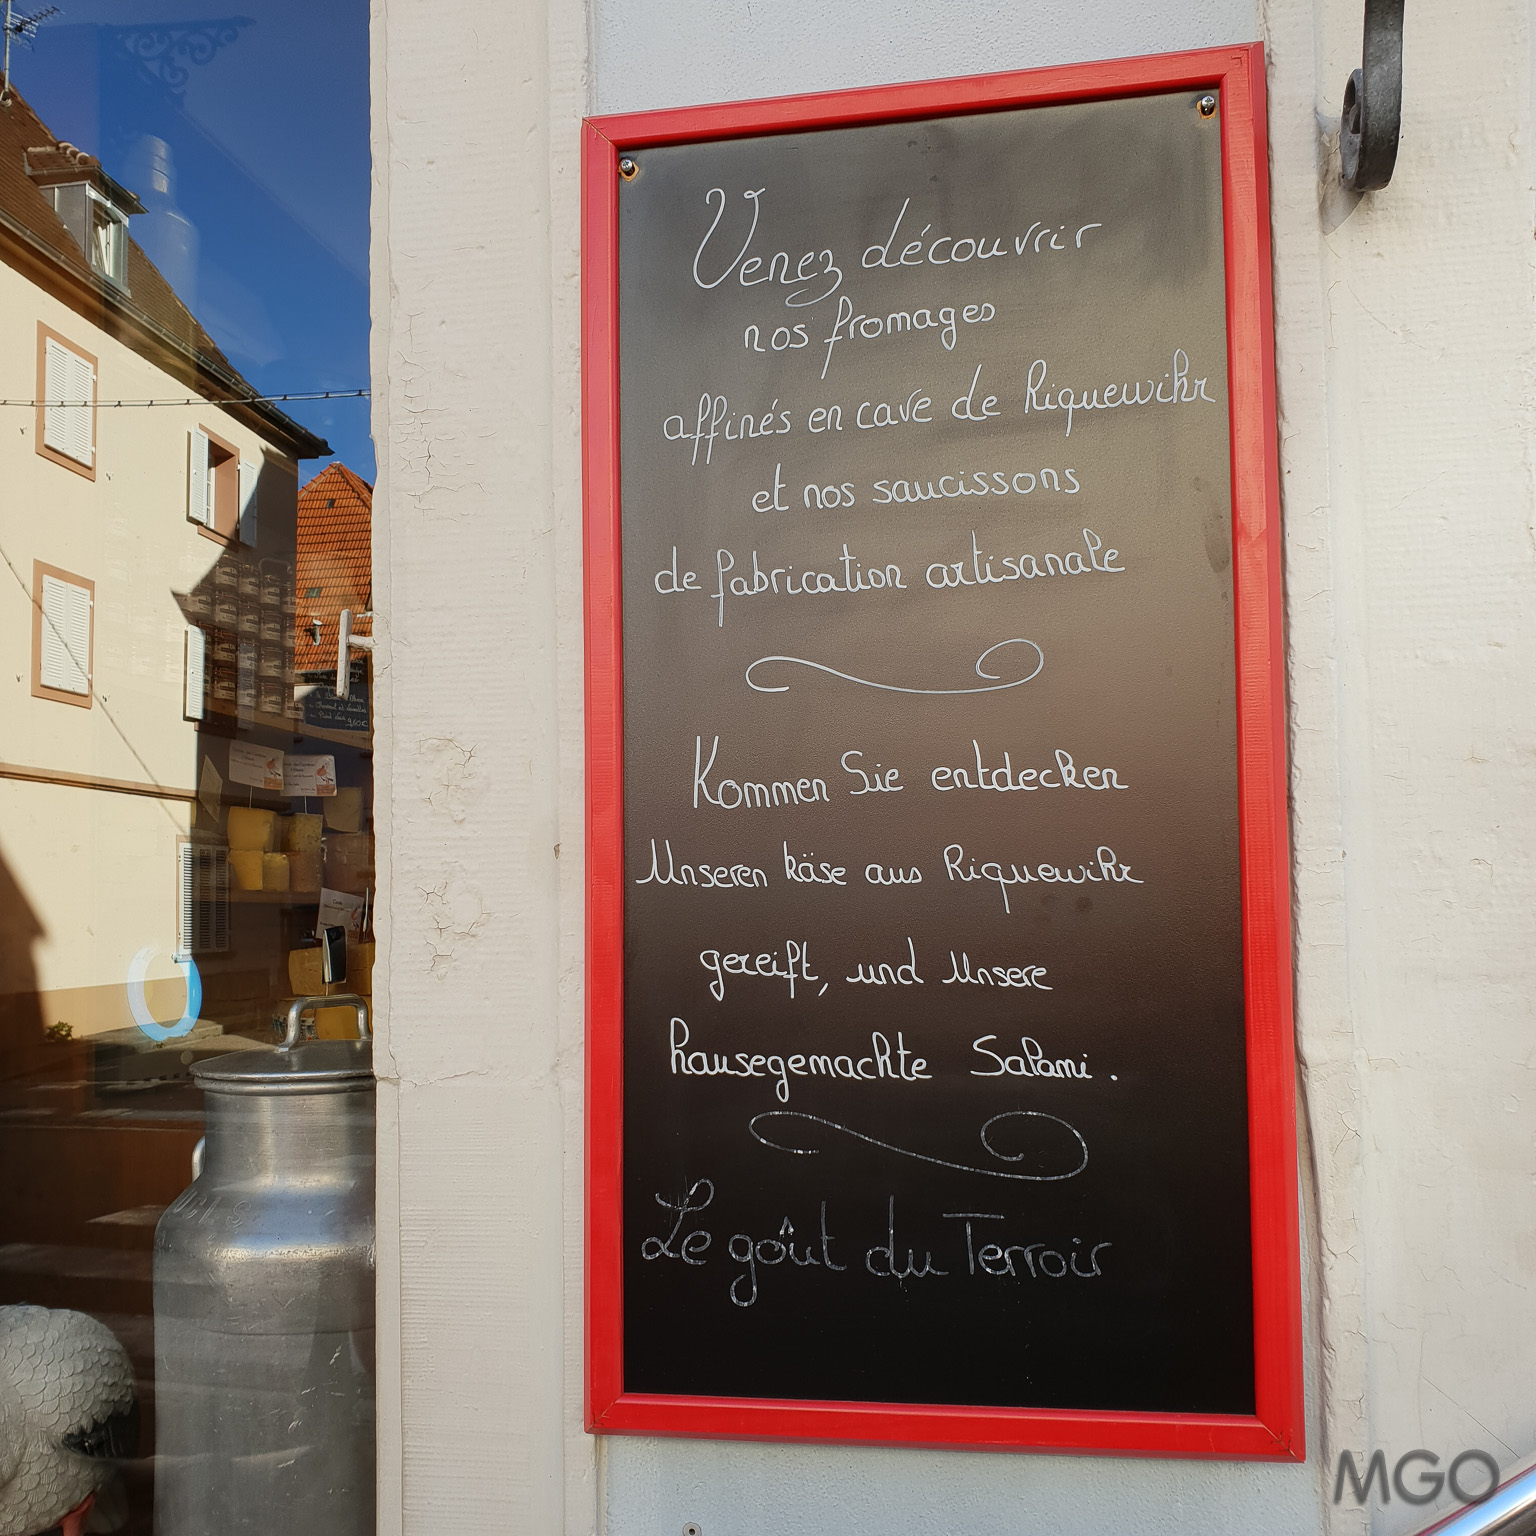 Venez découvrir
nos fromages
affinés en cave de Riquewihr
et nos saucissons
de fabrication artisanale
Kommen Sie entdecken
Unseren käse aus Riquewihr
gereift, und Unsere
hausegemachte Salami.
Le goût du Terroir
MGO